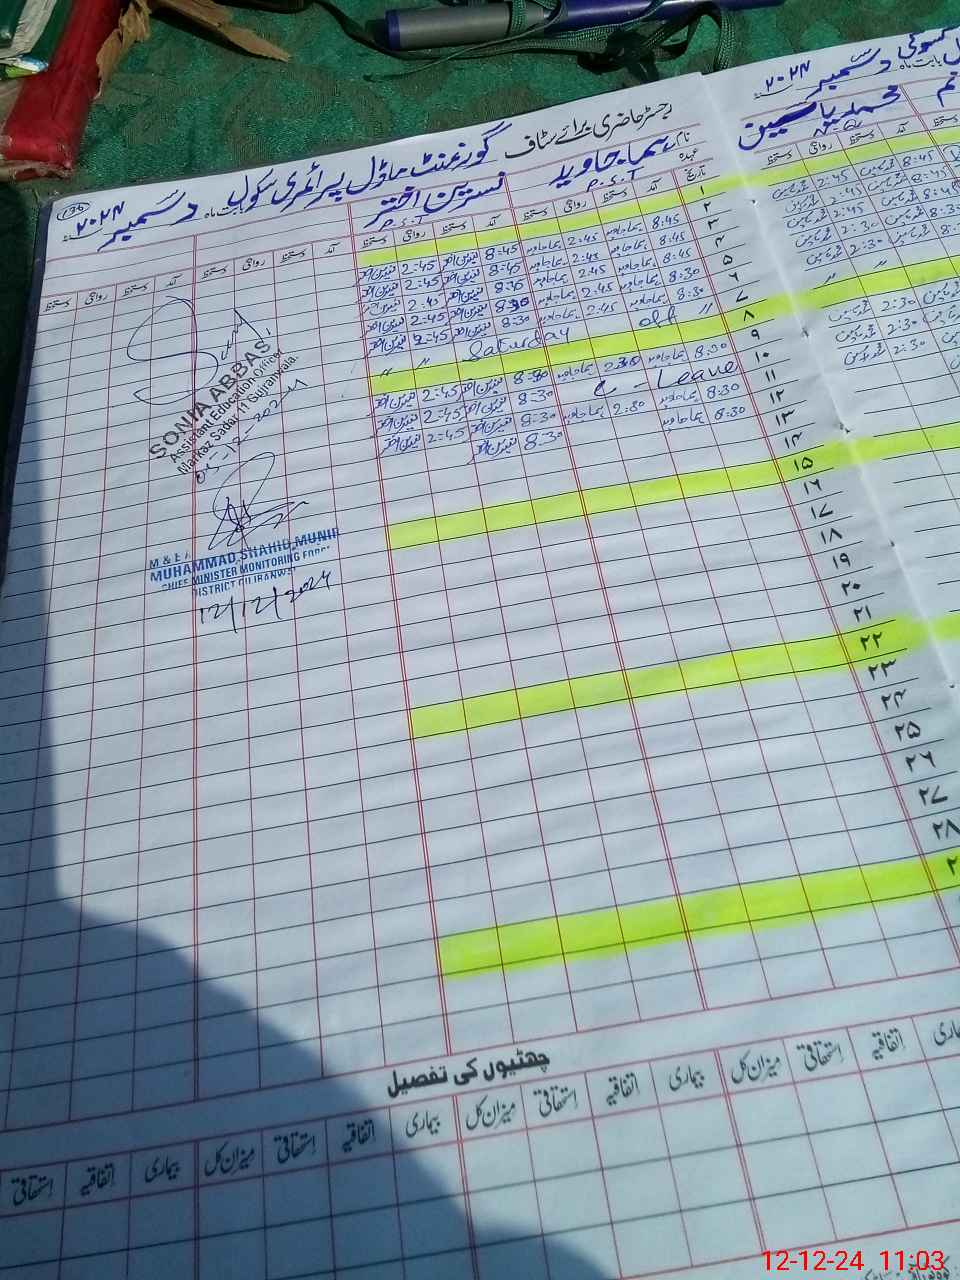 رجسٹر حاضری برائے سٹاف گورنمنٹ ماڈل پرائمری سکول بابت ماہ دسمبر ۲۰۲۴
136
نام سما جاوید نسرین اختر
عہدہ P.S.T P.S.T
تاریخ آمد دستخط روانگی دستخط آمد دستخط روانگی دستخط آمد دستخط روانگی دستخط آمد دستخط روانگی دستخط
۱
۲ 8:45 سما جاوید 2:45 سما جاوید 8:45 نسرین اختر 2:45 نسرین اختر
۳ 8:45 سما جاوید 2:45 سما جاوید 8:45 نسرین اختر 2:45 نسرین اختر
۴ 8:45 سما جاوید 2:45 سما جاوید 8:30 نسرین اختر 2:45 نسرین اختر
۵ 8:30 سما جاوید 2:45 سما جاوید 8:30 نسرین اختر 2:45 نسرین اختر
۶ 8:30 سما جاوید 2:45 سما جاوید 8:30 نسرین اختر 2:45 نسرین اختر
۷ " " Saturday off "
۸
۹ 8:30 سما جاوید 2:30 سما جاوید 8:30 نسرین اختر 2:45 نسرین اختر
۱۰ C - Leave 8:30 نسرین اختر 2:45 نسرین اختر
۱۱ 8:30 سما جاوید 2:30 سما جاوید 8:30 نسرین اختر 2:45 نسرین اختر
۱۲ 8:30 سما جاوید 8:30 نسرین اختر
۱۳
۱۴
۱۵
۱۶
۱۷
۱۸
۱۹
۲۰
۲۱
۲۲
۲۳
۲۴
۲۵
۲۶
۲۷
۲۸
SONIA ABBAS
Assistant Education Officer
Markaz Sadar 11 Gujranwala.
05-12-2024
M & E A
MUHAMMAD SHAHID MUNIR
CHIEF MINISTER MONITORING FORCE
DISTRICT GUJRANWALA
12/12/2024
چھٹیوں کی تفصیل
بیماری اتفاقیہ استحقاقی میزان کل بیماری اتفاقیہ استحقاقی میزان کل بیماری اتفاقیہ استحقاقی میزان کل بیماری اتفاقیہ استحقاقی
دسمبر ۲۰۲۴
بابت ماہ
محمد یاسین
آمد دستخط روانگی دستخط
8:45 2:45
8:45 2:45
8:45 2:45
8:30 2:30
" "
2:30
2:30
2:30
12-12-24 11:03